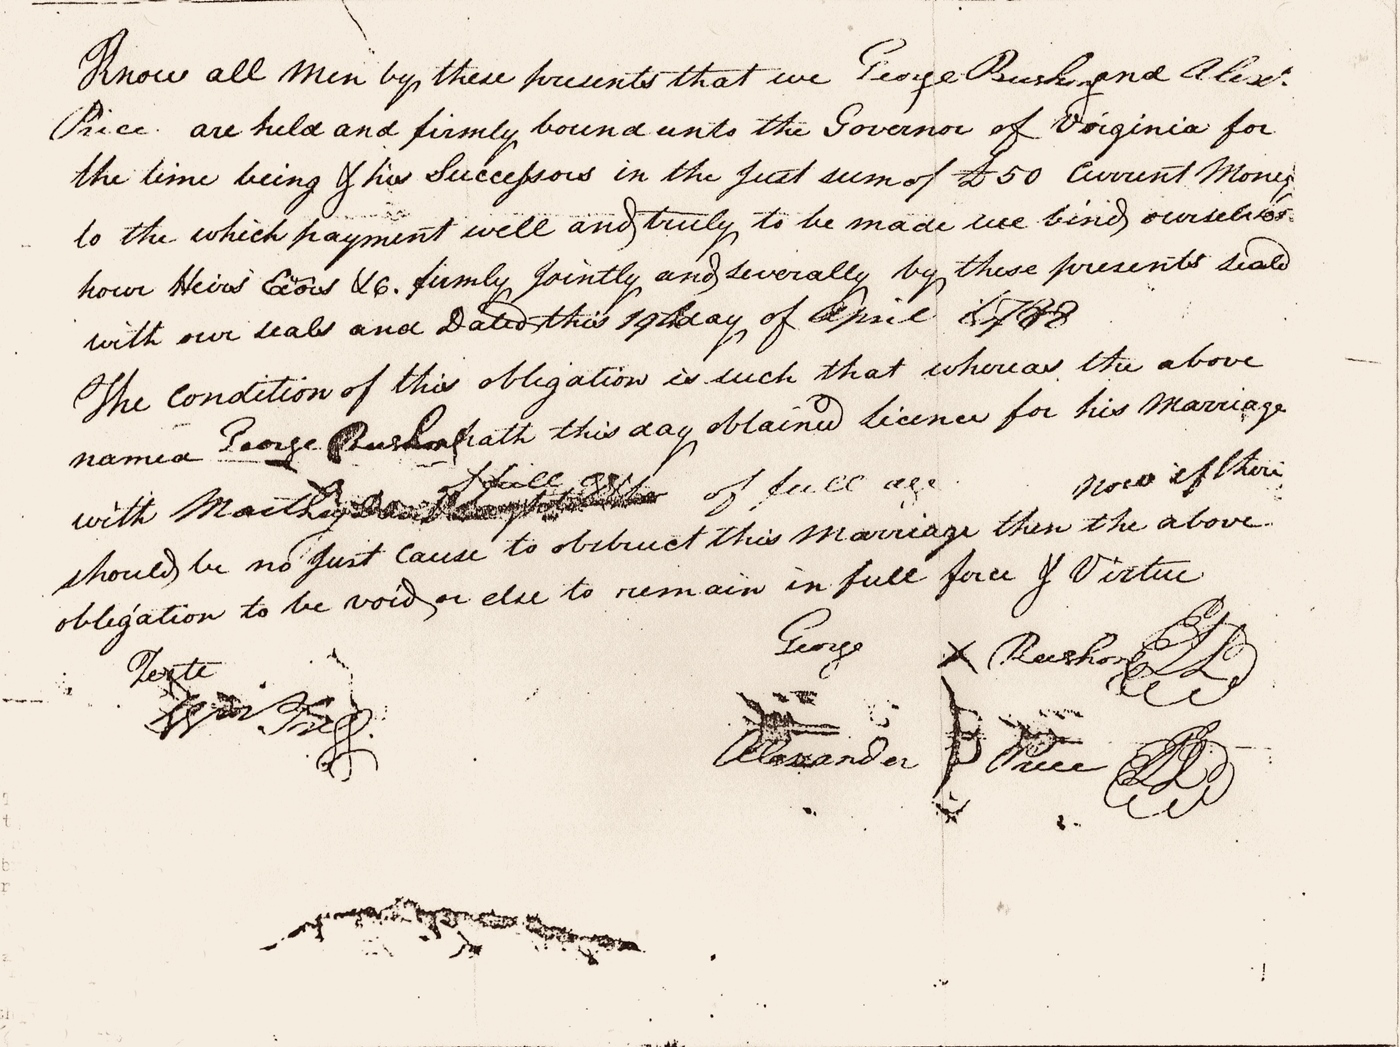 Know all Men by these presents that we George Rushon and Alexr.
Price are held and firmly bound unto the Governor of Virginia for
the time being & his Successors in the Just sum of £50 Current Money
to the which payment well and truly to be made we bind ourselves
howr Heirs Exors &c. firmly Jointly and severally by these presents seald
with our seals and Dated this 19th day of April 1788
The Condition of this obligation is such that whereas the above
named George Rushon hath this day obtained licence for his Marriage
of full age
with Martha of full age now if their
should be no Just Cause to obstruct this Marriage then the above
obligation to be void or else to remain in full force & Virtue
George X Rushon
Teste
Alexander B Price